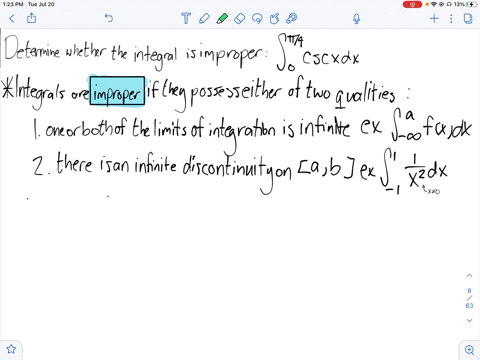 1:23 PM Tue Jul 20
13%
Determine whether the integral is improper: ∫₀^π/4 cscxdx
*Integrals are improper if they possess either of two qualities:
1. one or both of the limits of integration is infinite ex ∫₋∞^a f(x)dx
2. there is an infinite discontinuity on [a,b] ex ∫₋₁^1 1/x² dx
x≠0
8
/
63